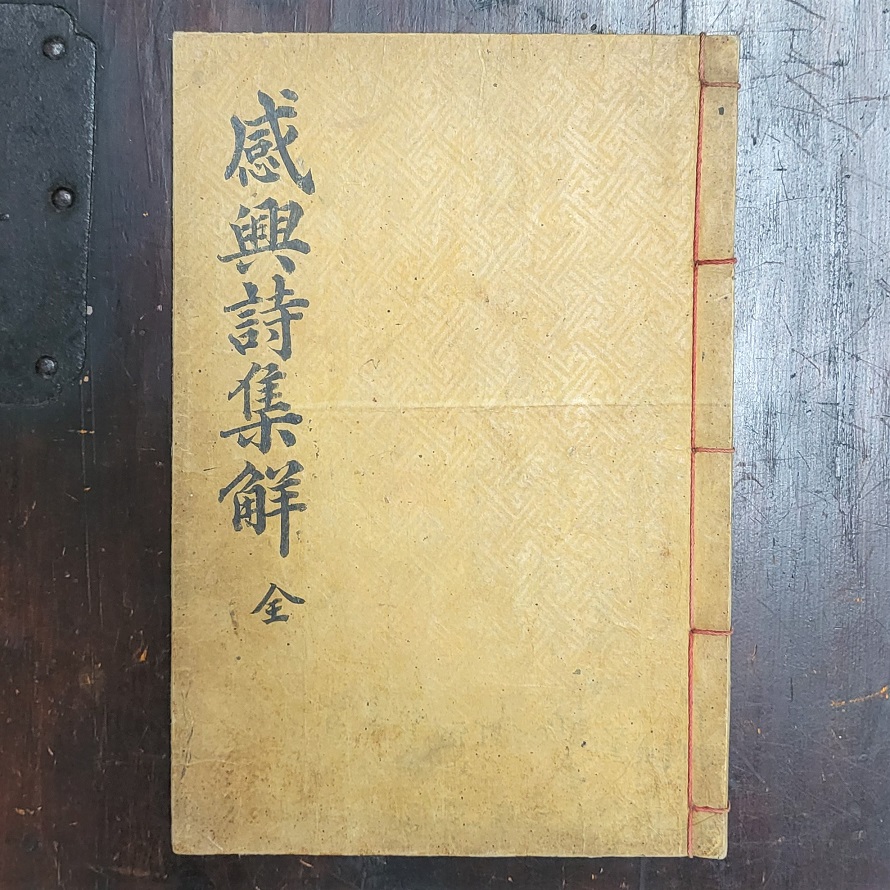 感興詩集觧 全